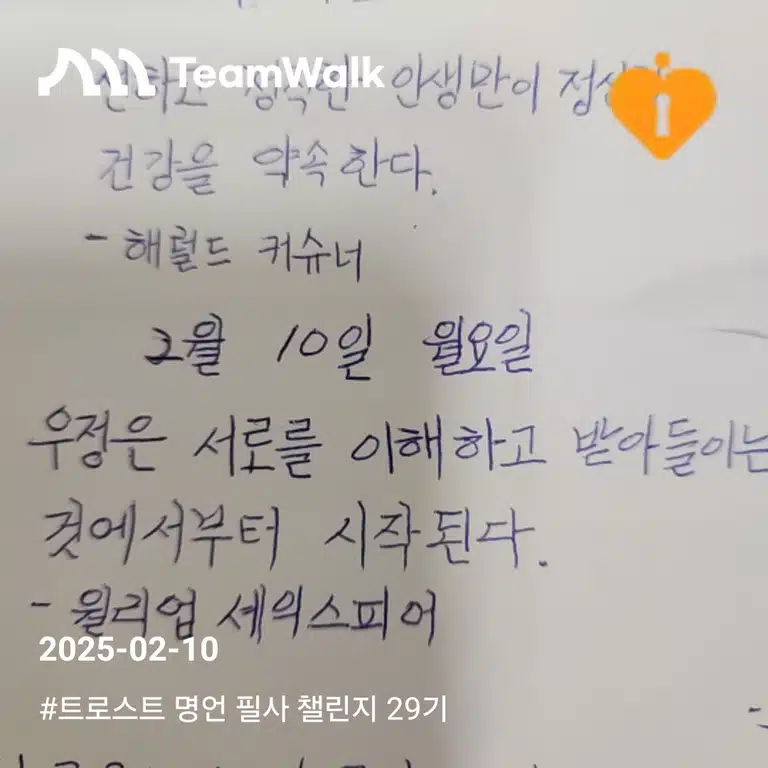 TeamWalk
정직한 인생만이
건강을 약속한다.
- 해럴드 커슈너
2월 10일 월요일
우정은 서로를 이해하고 받아들이는
것에서부터 시작된다.
- 윌리엄 셰익스피어
2025-02-10
#트로스트 명언 필사 챌린지 29기